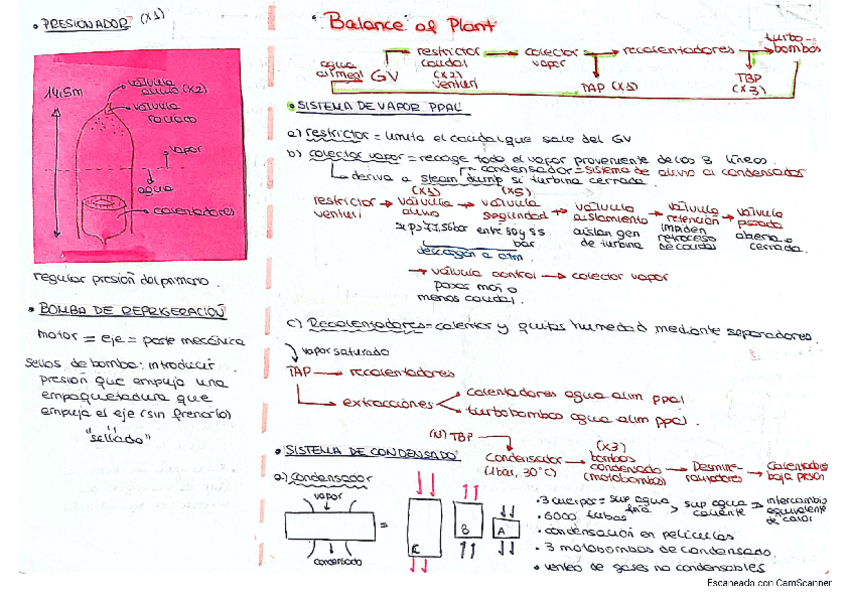 • PRESIONADOR (x1)
14.5m
válvula
alivio (x2)
válvula
rociado
vapor
agua
calentadores
regular presión del primario.
• BOMBA DE REFRIGERACIÓN
motor = eje = parte mecánica
sellos de bomba: introducir
presión que empuja una
empaquetadura que
empuja el eje (sin frenarlo)
"sellado"
"Balance of Plant
agua
aliment
GV
restrictor
caudal
(x2)
venturi
colector
vapor
TAP (x1)
recalentadores
TBP
(x3)
turbo-
bombas
• SISTEMA DE VAPOR PPAL
a) restrictor = limita el caudal que sale del GV
b) colector vapor = recoge todo el vapor proveniente de las 3 líneas.
condensador = sistema de alivio al condensador
deriva a steam dump si turbina cerrada.
restrictor
venturi
(x1)
válvula
alivio
si p > 77,56 bar
(x5)
válvula
seguridad
entre 80 y 85
bar
descargan a atm.
válvula
aislamiento
aislan gen
de turbina
válvula
retención
impiden
retroceso
de caudal
válvula
abierta o
cerrada.
válvula control → colector vapor
pasas más o
menos caudal.
c) Recalentadores = calentar y quitas humedad mediante separadores.
vapor saturado
TAP → recalentadores
extracciones
calentadores agua alim ppal
turbobombas agua alim ppal.
• SISTEMA DE CONDENSADO
(N) TBP
Condensador
(1bar, 30°C)
(x3)
bombas
condensado
(motobombas)
Desmine-
ralizadores
Calentadores
baja presión
a) condensador
vapor
condensado
=
C
B
A
• 3 cuerpos = sup agua fría > sup agua caliente ⇒ intercambio equivalente de calor
• 6000 tubos
• condensación en películas
• 3 motobombas de condensado.
• venteo de gases no condensables
Escaneado con CamScanner